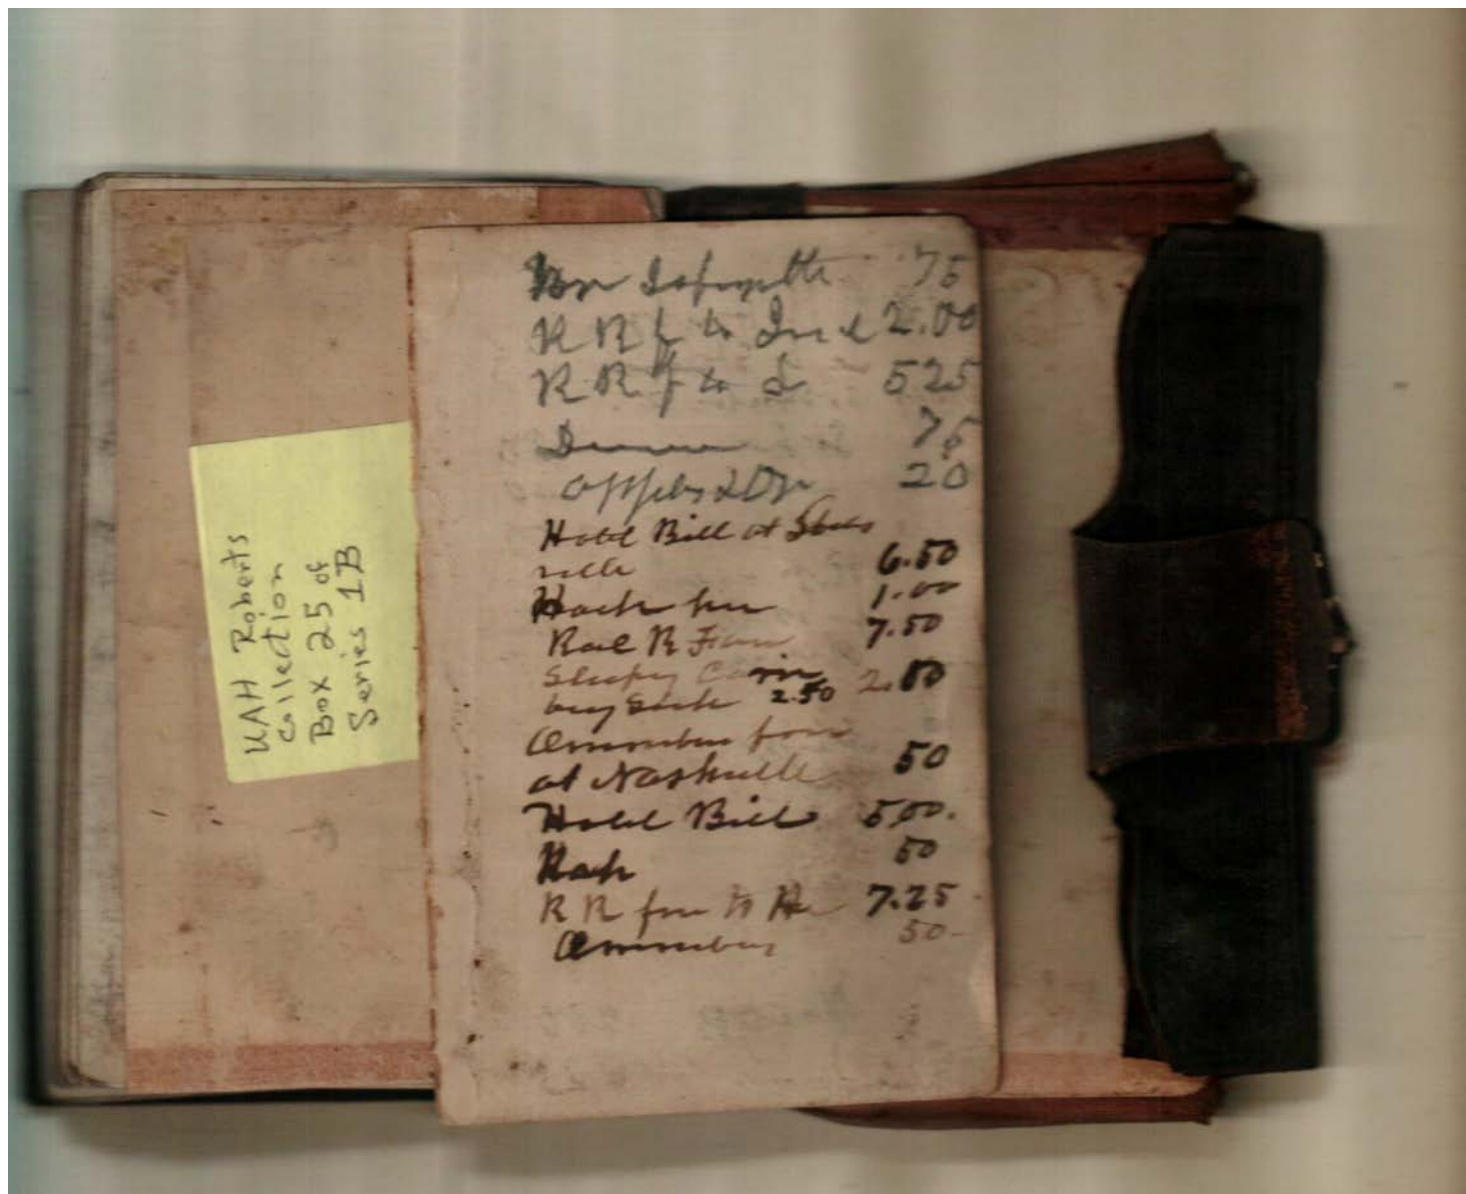 UAH Roberts
Collection
Box 25 of
Series 1B
Lafayette 75
R R f to Ind 2.00
R R f to L 525
75
apples 20
Hotel Bill at
ville 6.50
Hack 1.00
Rail R Fare 7.50
Sleeping 2.00
2.50
Omnibus fare
at Nashville 50
Hotel Bill 5,00.
Hack 50
R R fare to 7.25
Omnibus 50-